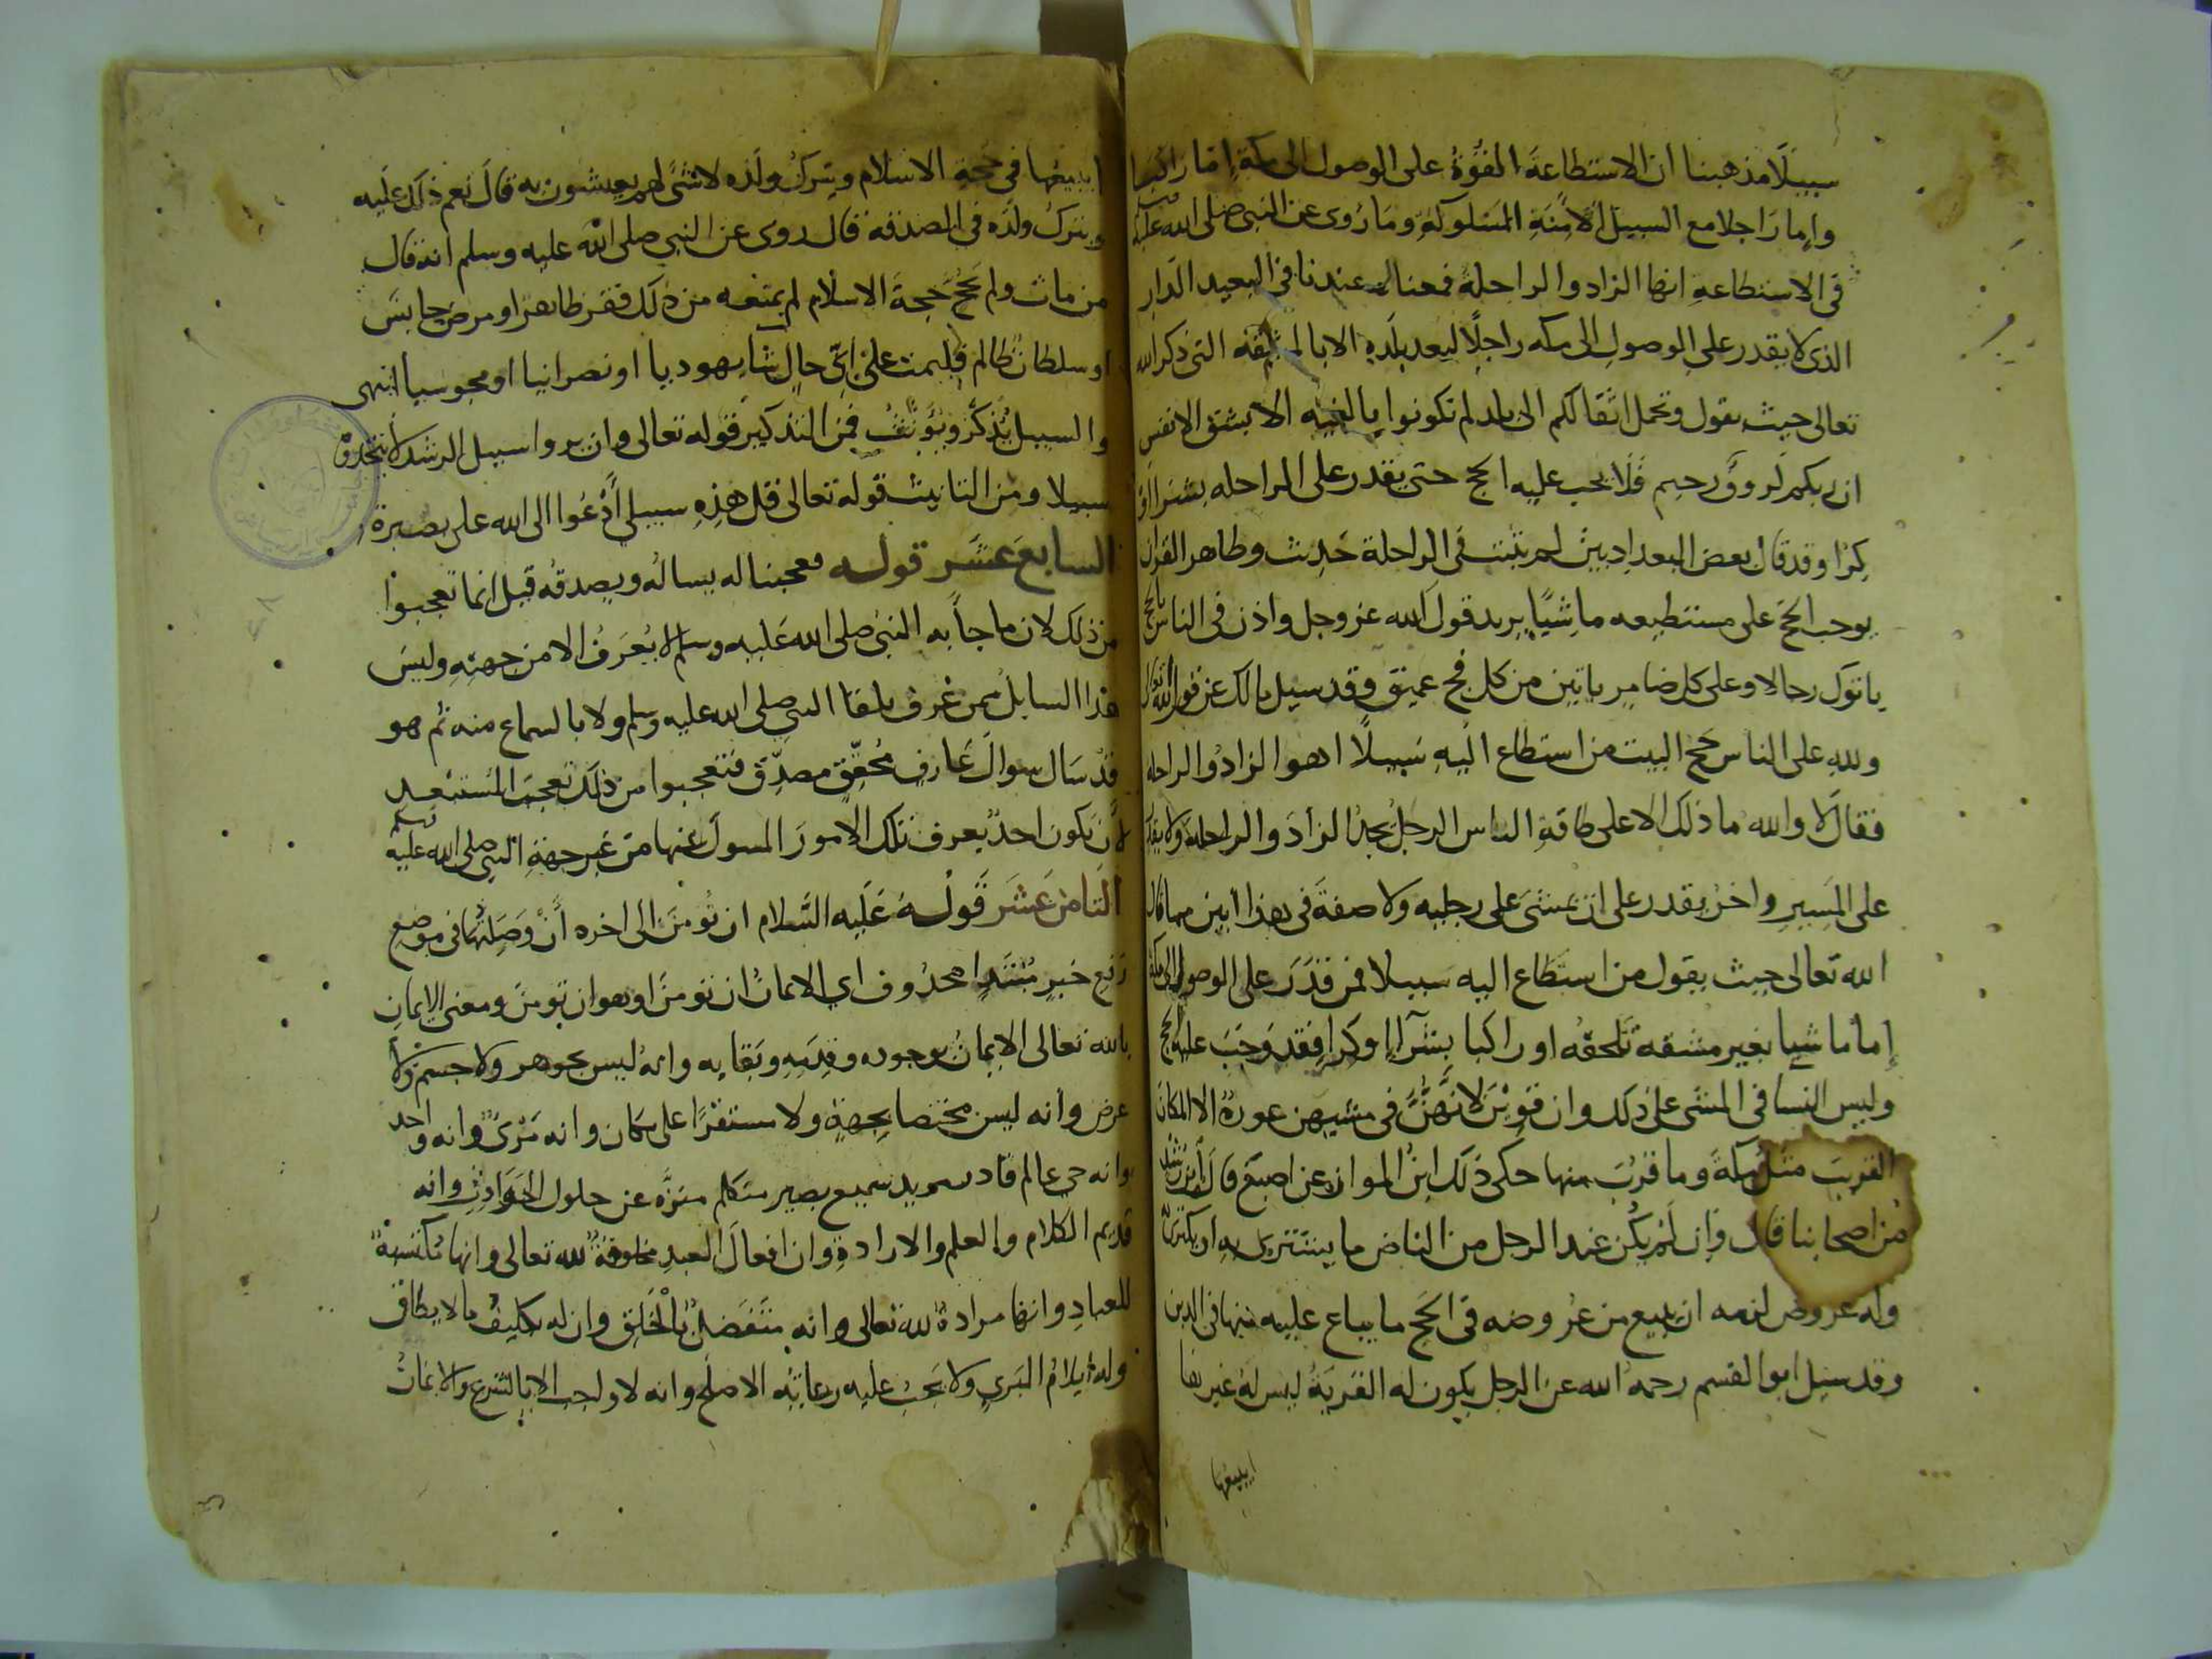 سبيلا مذهبنا ان الاستطاعة القوة على الوصول الى مكة إما راكبا
وإما راجلا مع السبيل الآمنة المسلوكة وما روى عن النبي صلى الله عليه وسلم
في الاستطاعة انها الزاد والراحلة فمعناه عندنا في البعيد الدار
الذى لا يقدر على الوصول الى مكه راجلا لبعد بلده الا بالمشقه التى ذكر الله
تعالى حيث يقول وتحمل اثقالكم الى بلد لم تكونوا بالغيه الا بشق الانفس
ان ربكم لرووف رحيم فلا يجب عليه الحج حتى يقدر على الراحله بشراء او
كرا وقد قال بعض البغداديين لم يثبت في الراحلة حديث وظاهر القران
يوجب الحج على مستطيعه ماشيا يريد قول الله عز وجل واذن فى الناس بالحج
ياتوك رجالا وعلى كل ضامر ياتين من كل فج عميق وقد سيل مالك عن قول الله تعالى
ولله على الناس حج البيت من استطاع اليه سبيلا اهو الزاد والراحله
فقال لا والله ما ذلك الا على طاقة الناس الرجل يجد الزاد والراحلة ولا يقدر
على المسير واخر يقدر على ان يمشى على رجليه ولا صفة فى هذا ابين مما قال
الله تعالى حيث يقول من استطاع اليه سبيلا فمن قدر على الوصول الى مكة
إما ماشيا بغير مشقه تلحقه او راكبا بشرآ او كرا فقد وجب عليه الحج
وليس النسا في المشى على ذلك وان قوين لانهن في مشيهن عورة الا المكان
القريب مثل مكة وما قرب منها حكى ذلك ابن المواز عن اصبغ قال ابن رشد
من اصحابنا قال وان لم يكن عند الرجل من الناض ما يشترى به او يكترى
وله عروض لزمه ان يبيع من عروضه في الحج ما يباع عليه منها في الدين
وقد سيل ابو القسم رحمه الله عن الرجل يكون له القرية ليس له غيرها
ايبيعها
ايبيعها في حجة الاسلام ويترك ولده لا شئ لهم يعيشون به قال نعم ذلك عليه
ويترك ولده في الصدقه قال روى عن النبي صلى الله عليه وسلم انه قال
من مات ولم يحج حجة الاسلام لم يمنعه من ذلك فقر ظاهر او مرض حابس
او سلطان ظالم فليمت على اي حال شا يهوديا او نصرانيا او مجوسيا انتهى
والسبيل يذكر ويؤنث فمن التذكير قوله تعالى وان يروا سبيل الرشد لا يتخذوه
سبيلا ومن التانيث قوله تعالى قل هذه سبيلي أدعوا الى الله على بصيرة
السابع عشر قوله فعجبنا له يساله ويصدقه قيل انما تعجبوا
من ذلك لان ما جأ به النبي صلى الله عليه وسلم لا يعرف الا من جهته وليس
هذا السايل ممن عرف بلقا النبي صلى الله عليه وسلم ولا بالسماع منه ثم هو
قد سال سوال عارف محقق مصدق فتعجبوا من ذلك تعجب المستبعد
لان يكون احد يعرف تلك الامور المسول عنها من غير جهة النبي صلى الله عليه وسلم
الثامن عشر قوله عليه السلام ان تومن الى اخره أن وصلتها في موضع
رفع خبر مبتدإ محذوف اي الايمان ان تومن او هو ان تومن ومعنى الايمان
بالله تعالى الايمان بوجوده وقدمه وبقايه وانه ليس بجوهر ولا جسم ولا
عرض وأنه ليس مختصا بجهة ولا مستقرا على مكان وانه مرئ وانه واحد
وانه حي عالم قادر مريد سميع بصير متكلم منزه عن حلول الحوادث وانه
قديم الكلام والعلم والارادة وان افعال العبد مخلوقة لله تعالى وانها مكتسبة
للعباد وانها مرادة لله تعالى وانه متفضل بالخلق وان له تكليف ما لا يطاق
وله ايلام البرى ولا يجب عليه رعاية الاصلح وانه لا واجب الا بالشرع والايمان